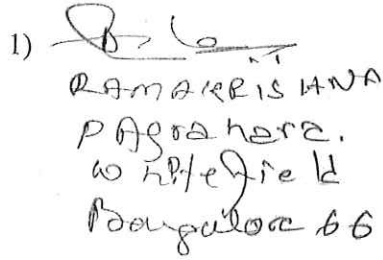 1)
RAMAKRISHNA
Pagrahara.
whitefield
Bangalore 66